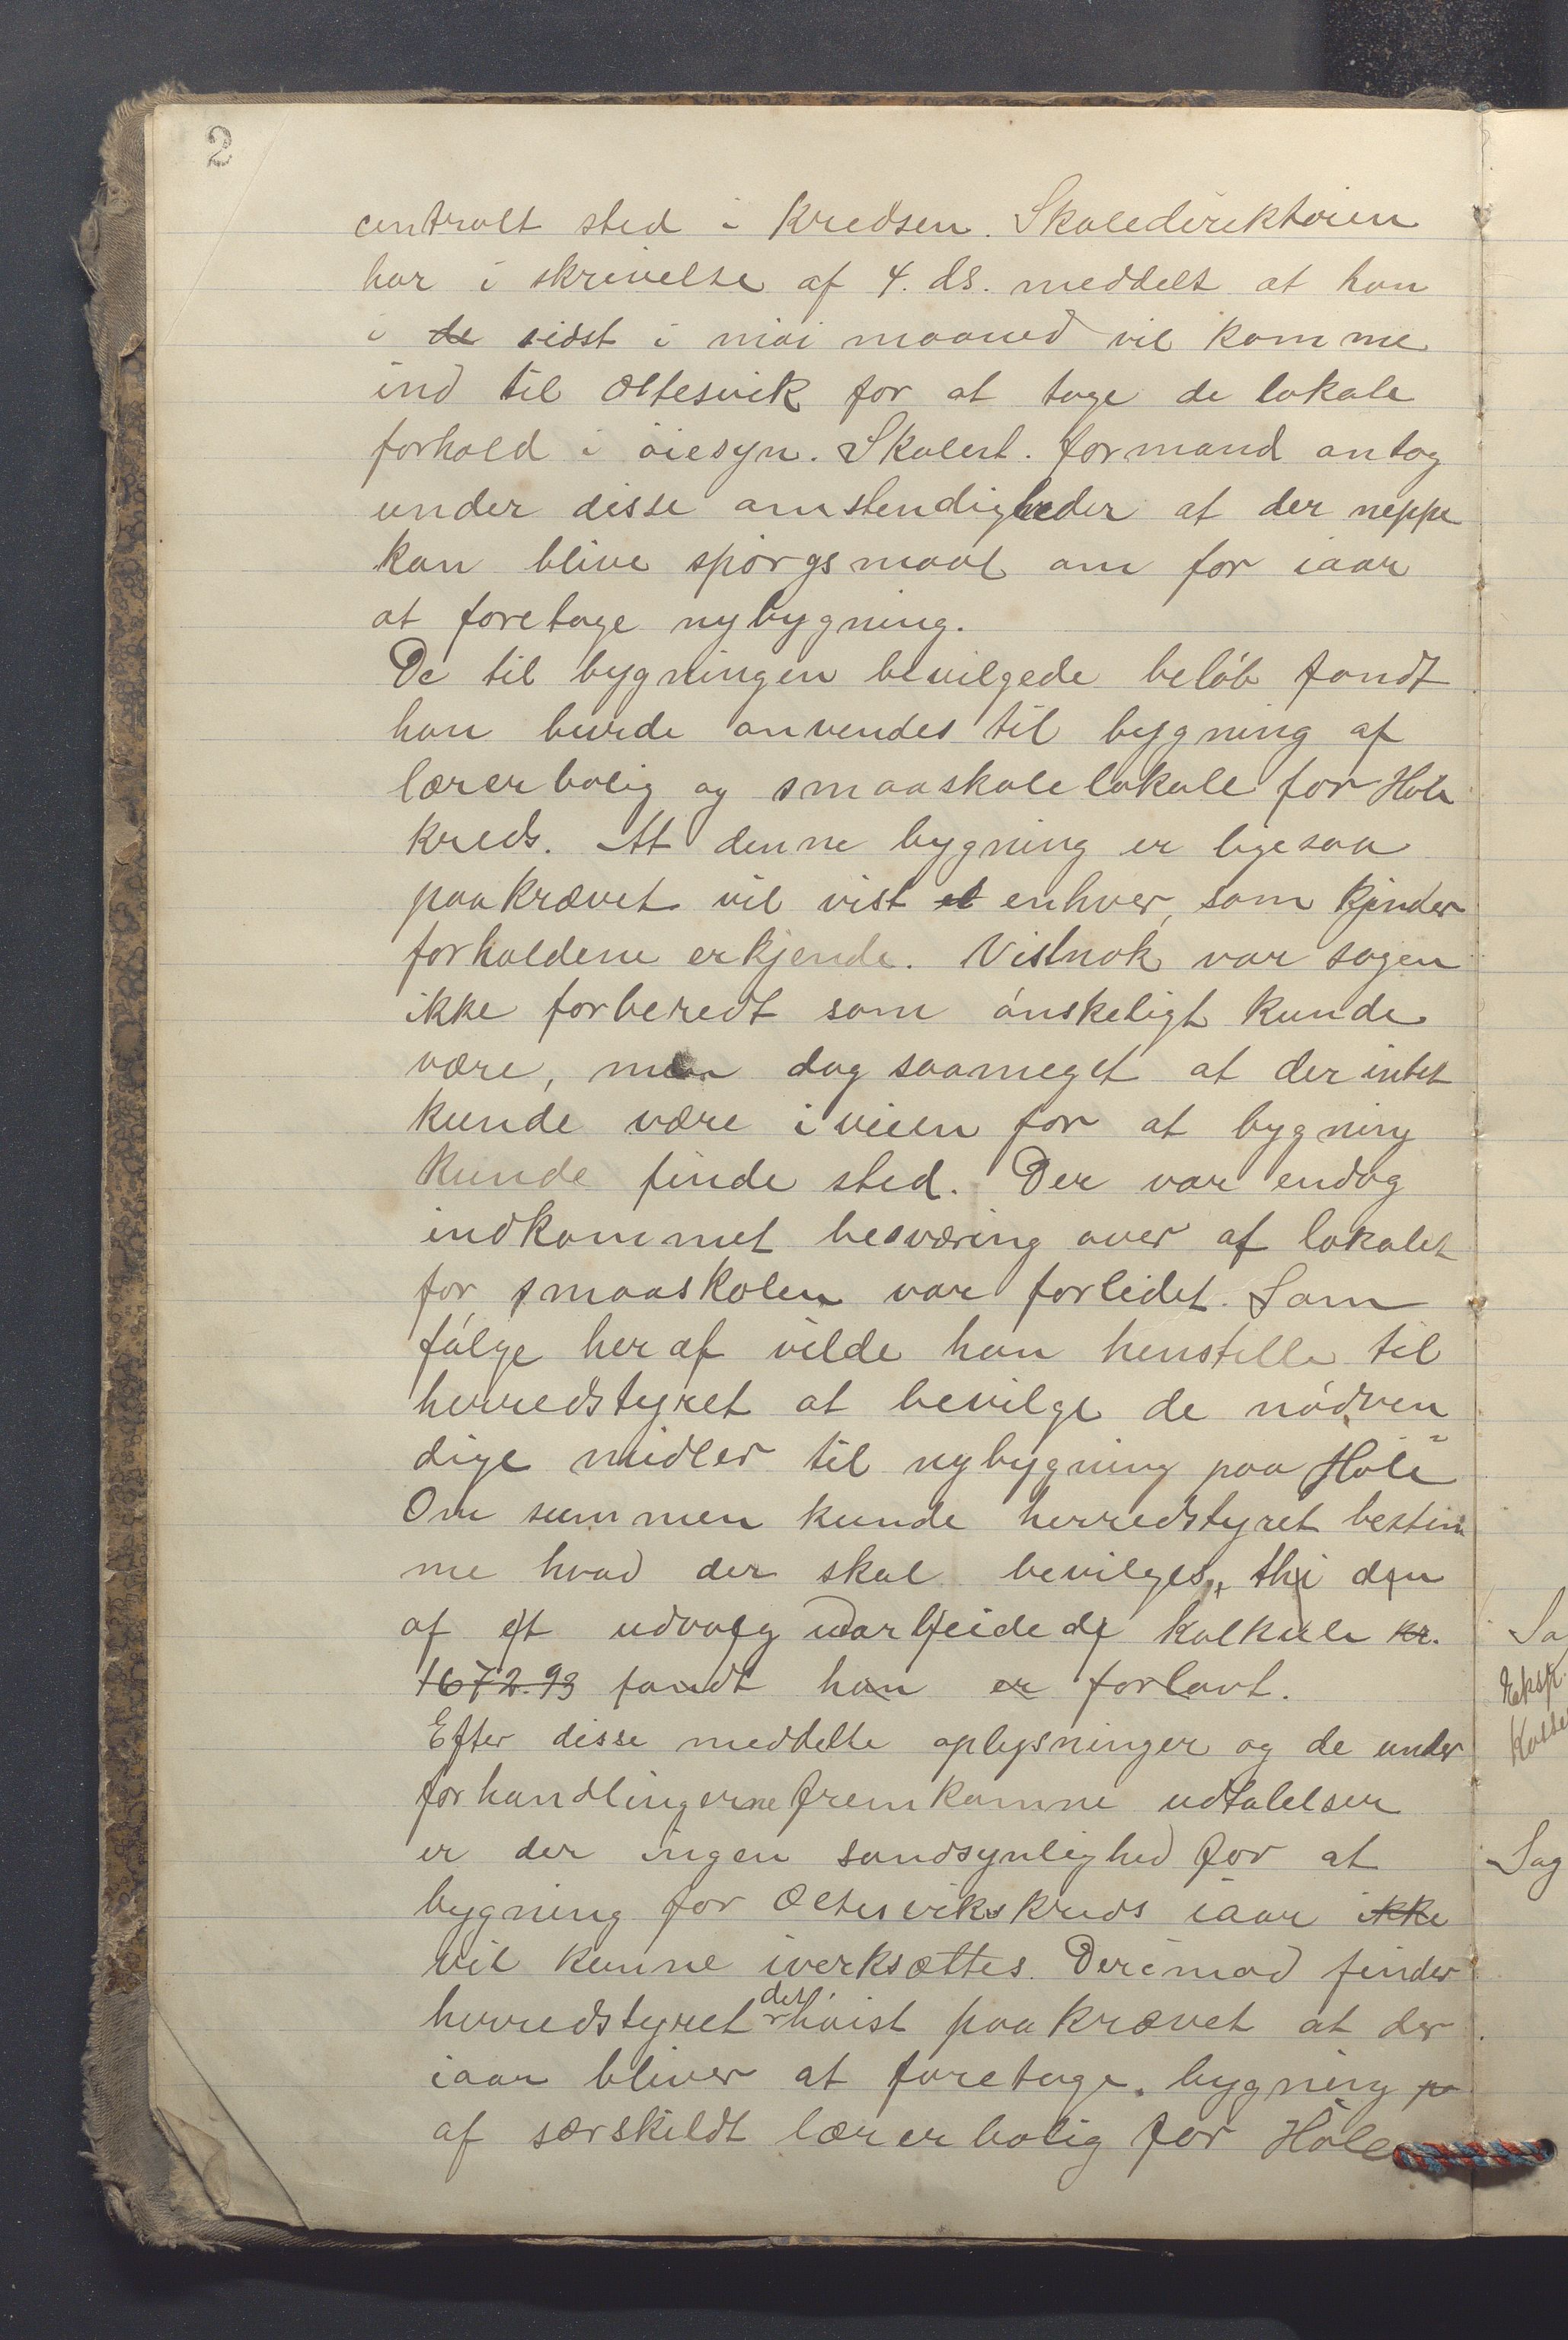 2
centralt sted i kredsen. Skoledirektøren
har i skrivelse af 4. ds. meddelt at han
i de sidst i mai maaned vil komme
ind til Oltesvik for at tage de lokale
forhold i øiesyn. Skolest. formand antog
under disse omstendigheder at der neppe
kan blive spørgsmaal om for iaar
at foretage nybygning.
De til bygningen bevilgede beløb fandt
han burde anvendes til bygning af
lærerbolig og smaaskolelokale for Høle
kreds. At denne bygning er ligesaa
paakrævet vil vist et enhver, som kjender
forholdene erkjende. Vistnok var sagen
ikke forberedt som ønskeligt kunde
være, men dog saameget at der intet
kunde være iveien for at bygning
kunde finde sted. Der var endog
indkommet besværing over at lokalet
for smaaskolen var forlidet. Som
følge heraf vilde han henstille til
herredstyret at bevilge de nødven
dige midler til nybygning paa Høle
Om summen kunde herredstyret bestem
me hvad der skal bevilges, thi den
af et udvalg udarbeidede kalkule kr.
1672.93 fandt han er forlavt.
Efter disse meddelte oplysninger og de under
forhandlingerne fremkomne udtalelser
er der ingen sandsynlighed for at
bygning for Oltesvik kreds iaar ikke
vil kunne iverksættes. Derimod finder
herredstyret det høist paakrævet at der
iaar bliver at foretage bygning pa
af særskildt lærerbolig for Høle
Sa
Eksp.
Sag